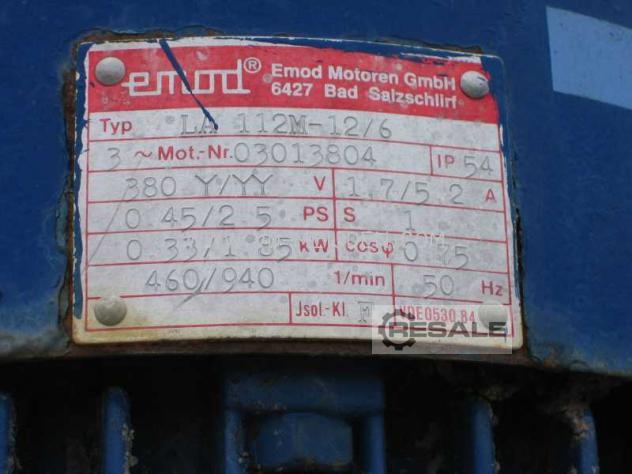 emod® Emod Motoren GmbH
6427 Bad Salzschlirf
Typ LA 112M-12/6
3~Mot.-Nr. 03013804 IP 54
380 Y/YY V 1.7/5.2 A
0.45/2.5 PS S 1
0.33/1.85 kW cosφ 0.75
460/940 1/min 50 Hz
Jsol.-Kl. F VDE0530 84
RESALE